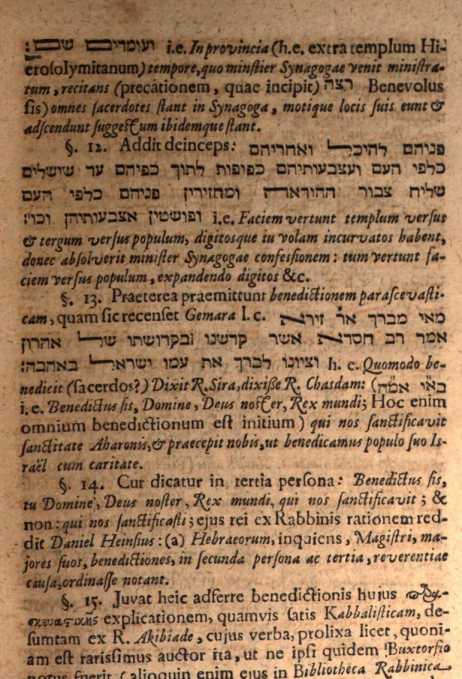 ועומדים שם: i.e. In provincia (h.e. extra templum Hi-
erosolymitanum) tempore, quo minster Synagogae venit ministra-
tum, recitans (precationem, quae incipit) רצה Benevolus
sis) omnes sacerdotes stant in Synagoga, motique locis suis eunt &
adscendunt suggestum ibidemque stant.
§. 12. Addit deinceps: פניהם להיכל ואחריהם
כלפי העם ועצבעותיהם כפיפות לתוך כפיהם עד שישלים
שליח צבור ההוראה ומחזירין פניהם כלפי העם
ופושטין אצבעותיהן וכו׳: i.e. Faciem vertunt templum versus
& tergum versus populum, digitosque in volam incurvatos habent,
donec absolverit minister Synagogae confessionem: tum vertunt fa-
ciem versus populum, expandendo digitos &c.
§. 13. Praeterea praemittunt benedictionem parascevasti-
cam, quam sic recenset Gemara l. c. מאי מברך אר זירא
אמר רב חסדא אשר קדשנו בקדושתו של אהרון
וציונו לברך את עמו ישראל באהבה: h. e. Quomodo be-
nedicit (sacerdos?) Dixit R. Sira, dixisse R. Chasdam: (
i.e. Benedictus sis, Domine, Deus noster, Rex mundi; Hoc enim
omnium benedictionum est initium) qui nos sanctificavit
sanctitate Aharonis, & praecepit nobis, ut benedicamus populo suo Is-
raël cum caritate.
§. 14. Cur dicatur in tertia persona: Benedictus sis,
tu Domine, Deus noster, Rex mundi, qui nos sanctificavit; &
non: qui nos sanctificasti; ejus rei ex Rabbinis rationem red-
dit Daniel Heinsius: (a) Hebraeorum, inquiens, Magistri, ma-
jores suos, benedictiones, in secunda persona ac tertia, reverentiae
causa, ordinasse notant.
§. 15. Juvat heic adferre benedictionis hujus
explicationem, quamvis satis Kabbalisticam, de-
sumtam ex R. Akibiade, cujus verba, prolixa licet, quoni-
am est rarissimus auctor ita, ut ne ipsi quidem Buxtorfio
notus fuerit (alioquin enim ejus in Bibliotheca Rabbinica